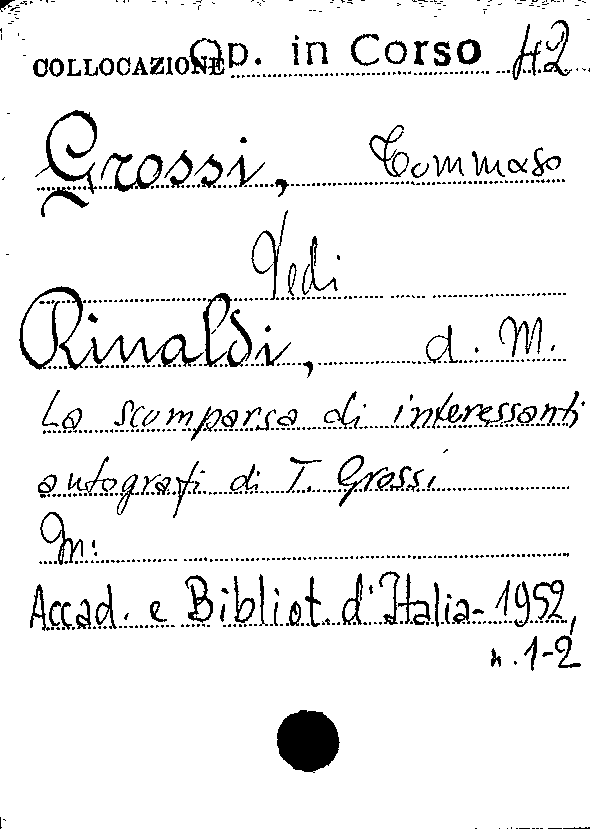 COLLOCAZIONE Op. in Corso 42
Grossi, Tommaso
Vedi
Rinaldi, d. M.
La scomparsa di interessanti
autografi di T. Grossi
In:
Accad. e Bibliot. d'Italia - 1952,
n. 1-2